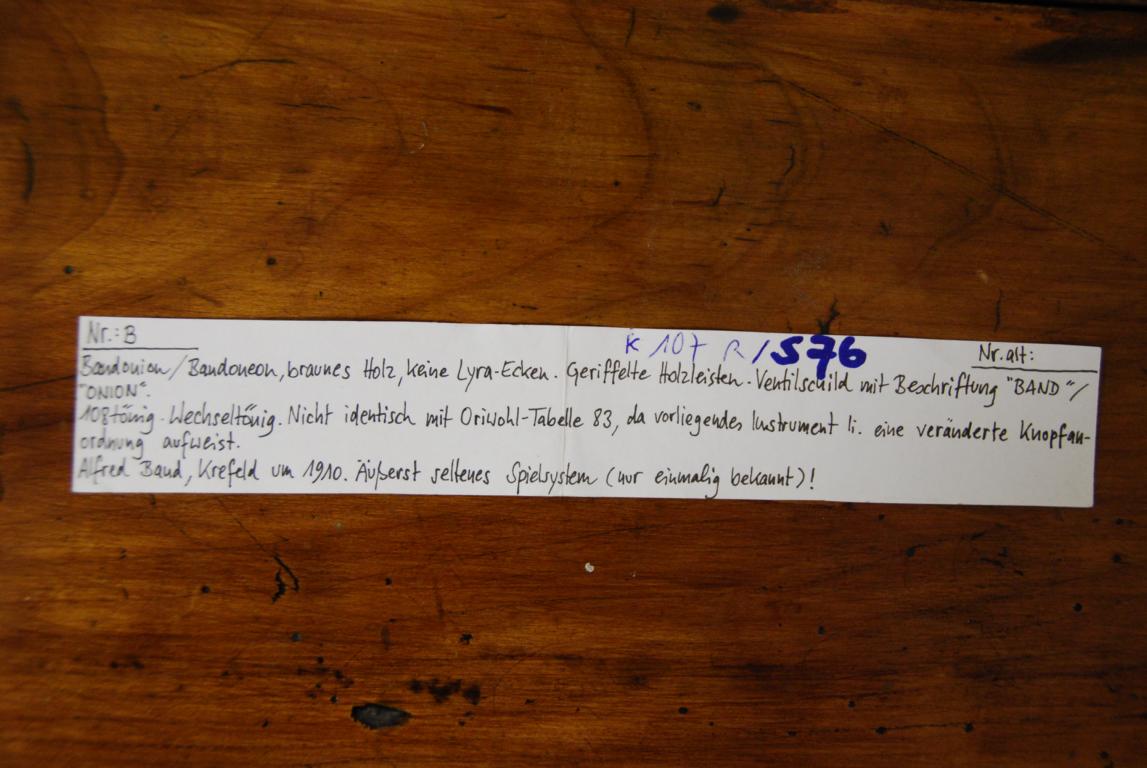 Nr.: B
K 107 R/576
Nr. alt:
Bandonion/Bandoneon, braunes Holz, keine Lyra-Ecken. Geriffelte Holzleisten. Ventilschild mit Beschriftung "BAND"/
"ONION".
108tönig. Wechseltönig. Nicht identisch mit Oriwohl-Tabelle 83, da vorliegendes Instrument li. eine veränderte Knopfan-
ordnung aufweist.
Alfred Band, Krefeld um 1910. Äußerst seltenes Spielsystem (nur einmalig bekannt)!